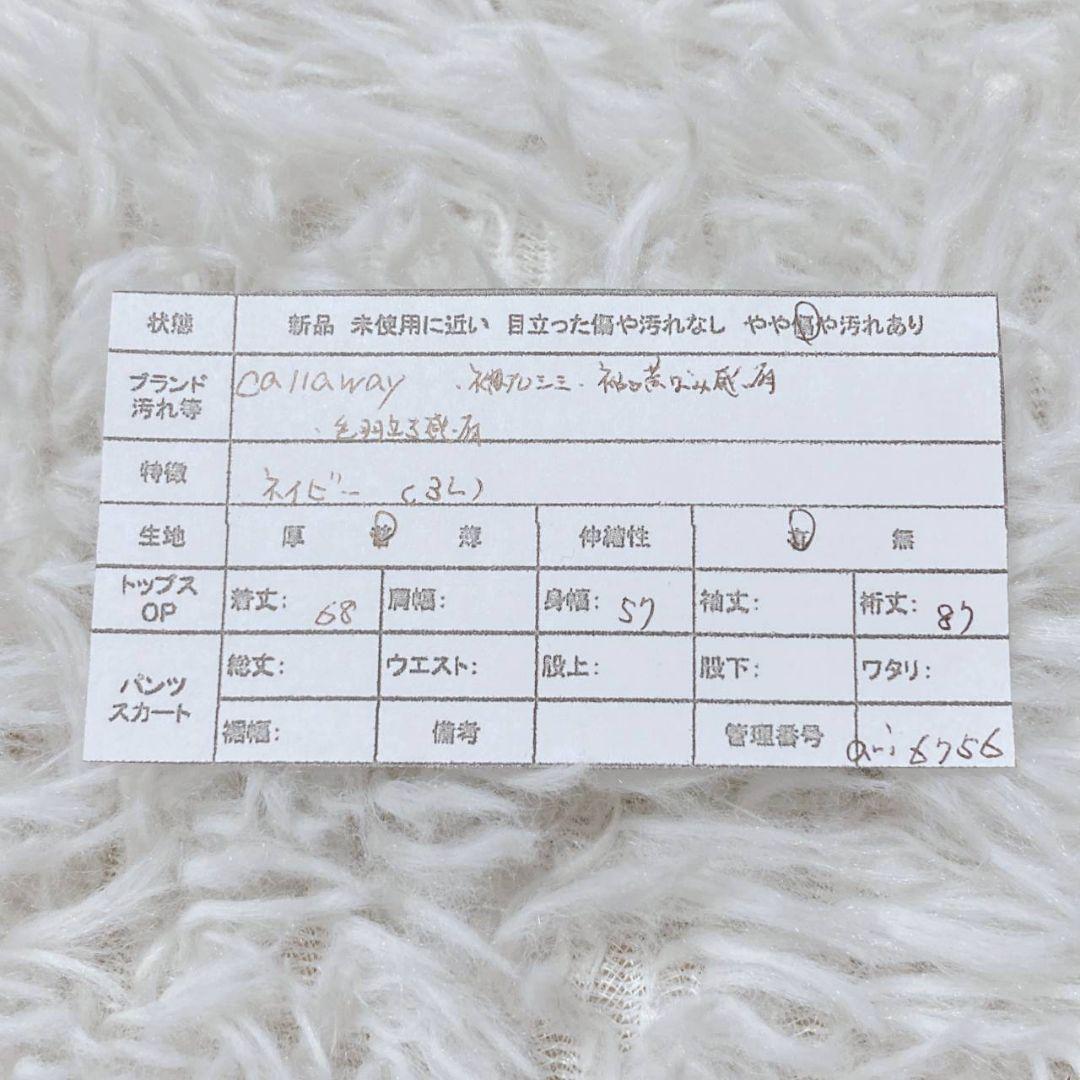 状態 新品 未使用に近い 目立った傷や汚れなし やや傷や汚れあり
ブランド
汚れ等
callaway ・襟元シミ・袖口黄ばみ感有
・毛羽立ち感有
特徴 ネイビー (3L)
生地 厚 普 薄 伸縮性 有 無
トップス
OP
着丈: 68 肩幅: 身幅: 57 袖丈: 裄丈: 87
パンツ
スカート
総丈: ウエスト: 股上: 股下: ワタリ:
裾幅: 備考 管理番号 ari6756